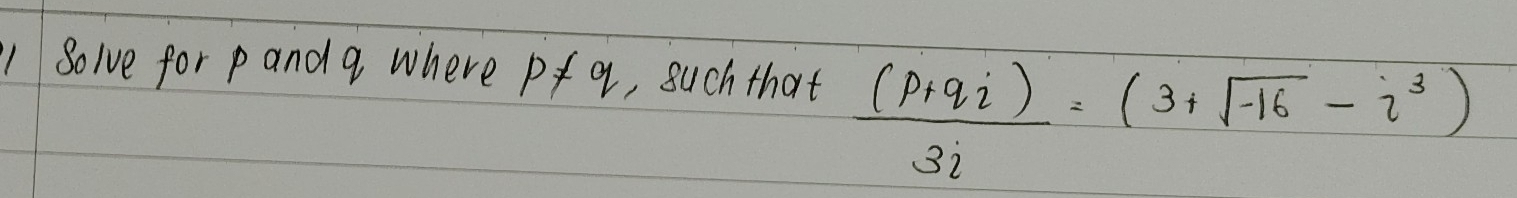 1 Solve for p and q where p ≠ q, such that (p+qi) / 3i = (3 + √-16 - i³)